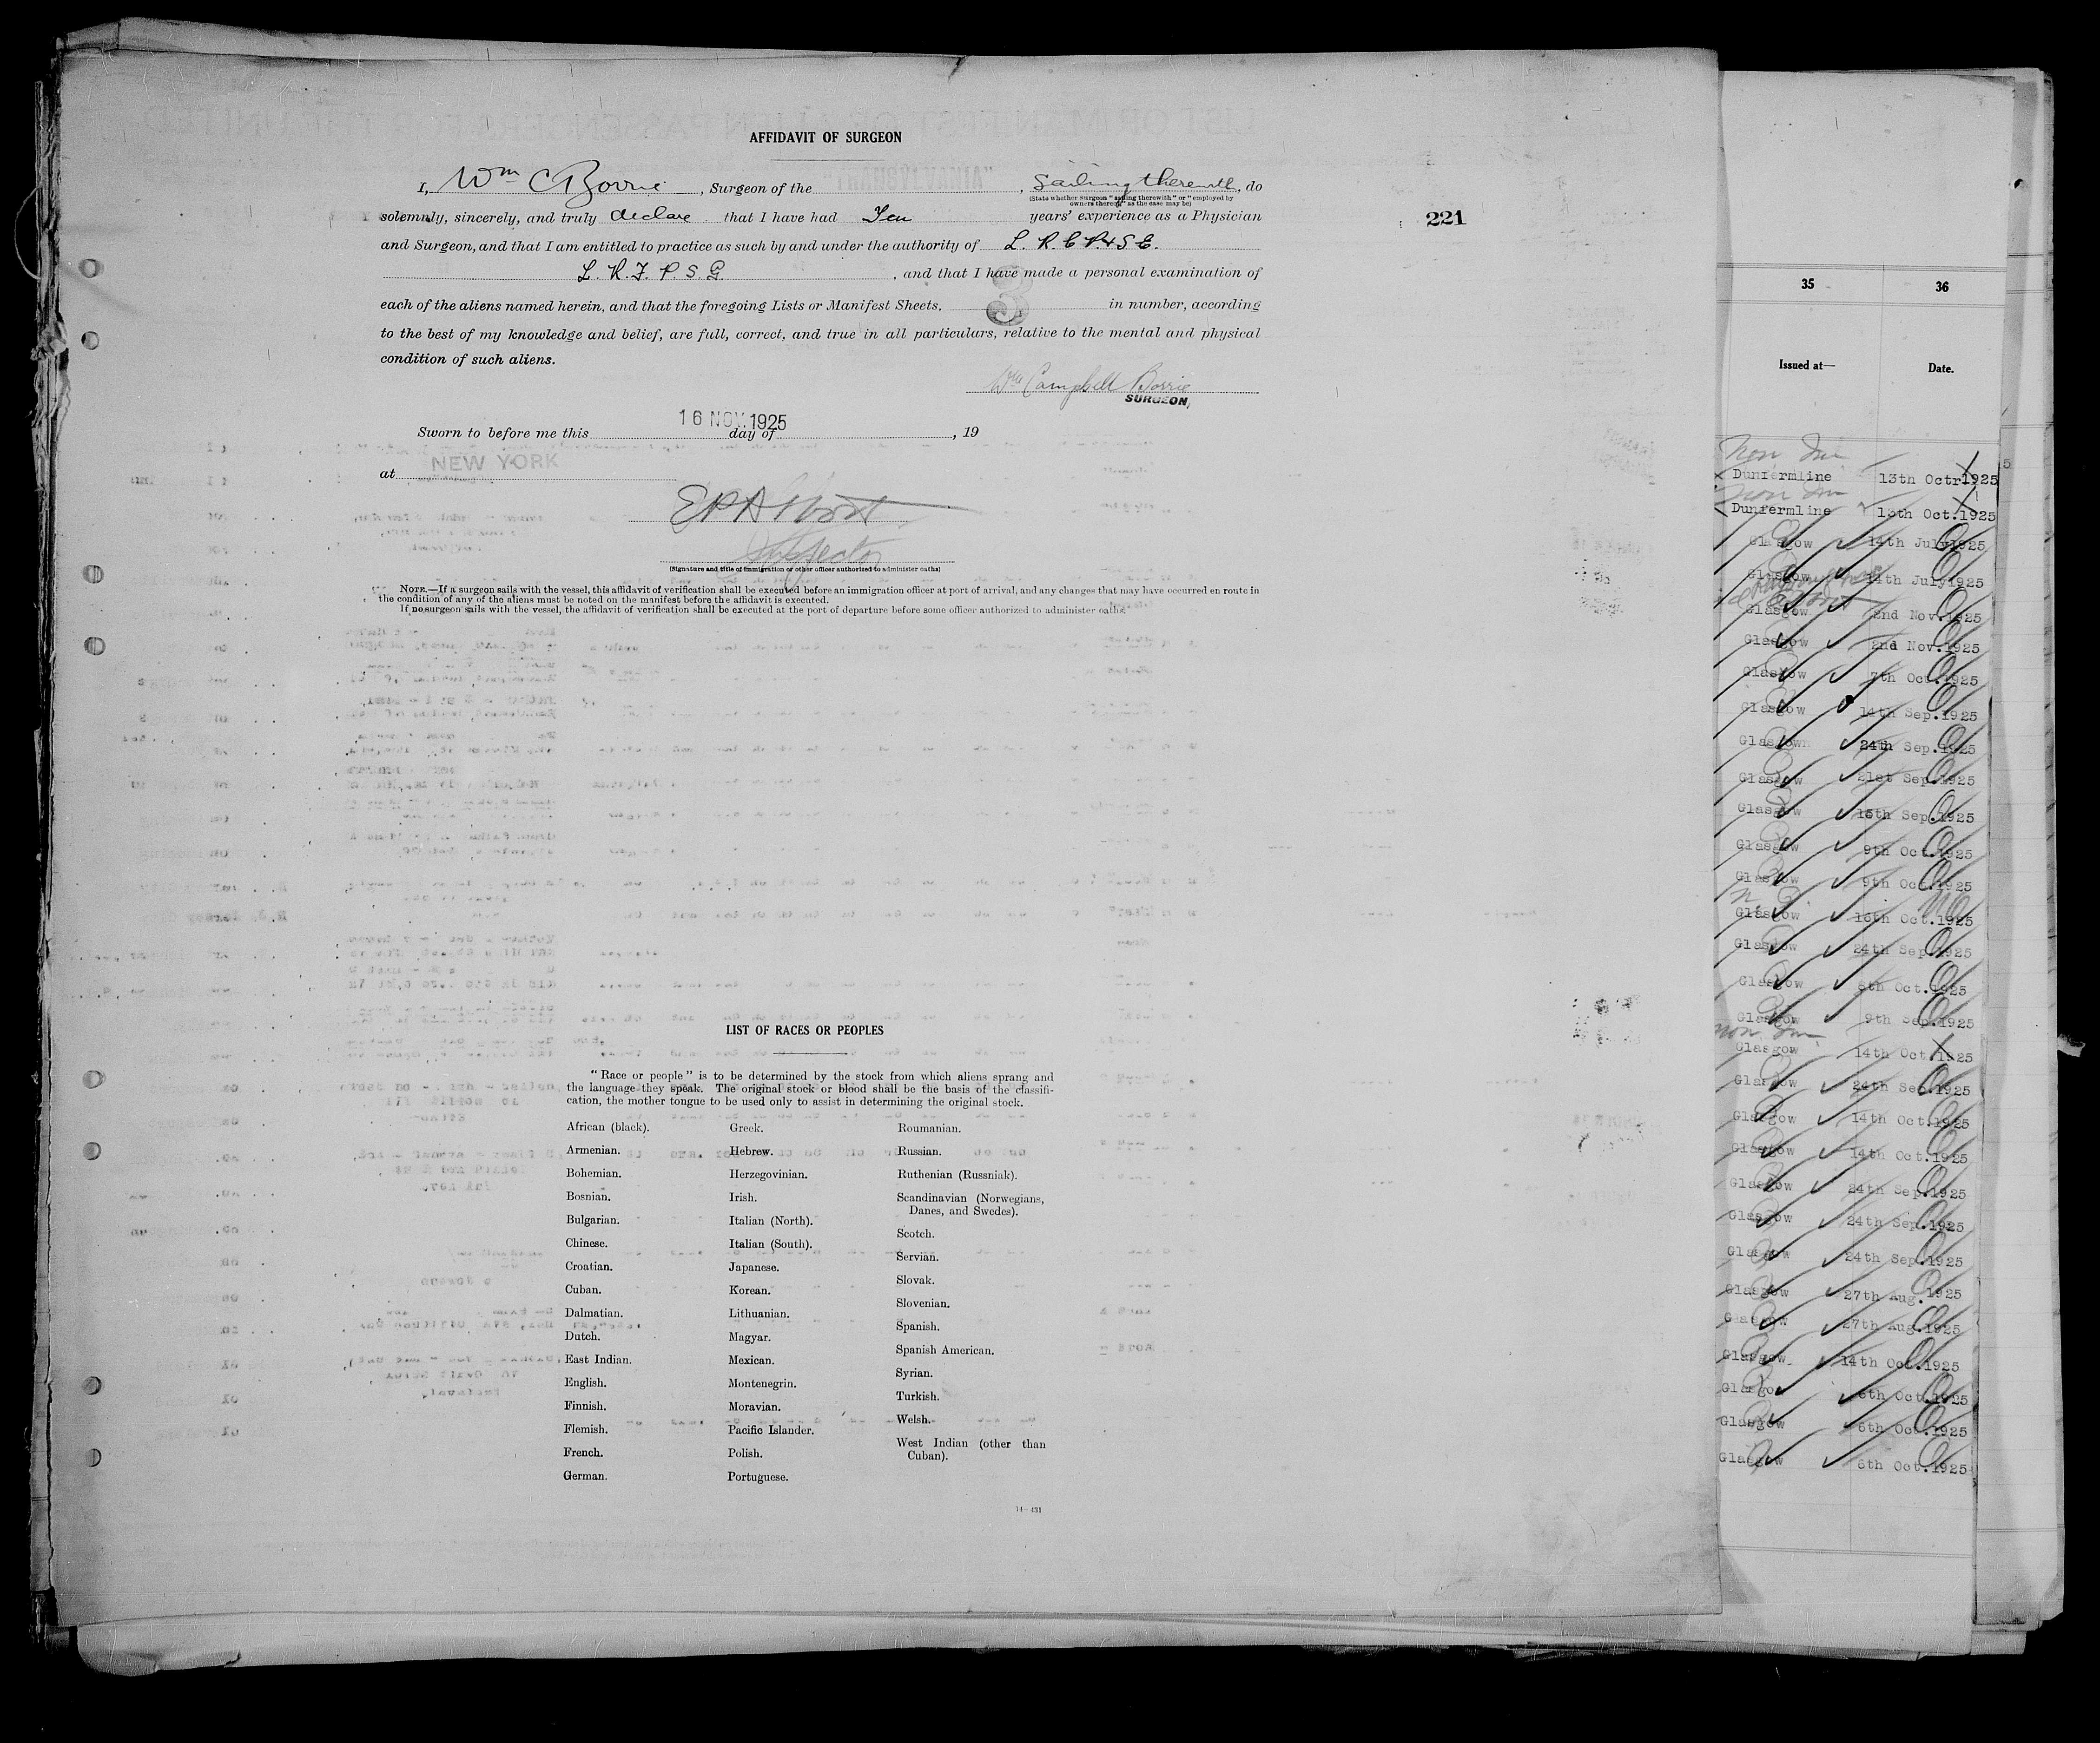 AFFIDAVIT OF SURGEON
I, Wm C Borrie, Surgeon of the , Sailing therewith, do
(State whether Surgeon "sailing therewith" or "employed by
owners thereof," as the case may be)
solemnly, sincerely, and truly declare that I have had Ten years' experience as a Physician
221
and Surgeon, and that I am entitled to practice as such by and under the authority of L. R. C P. & S E.
L. R. F. P. S. G. , and that I have made a personal examination of
each of the aliens named herein, and that the foregoing Lists or Manifest Sheets, 3 in number, according
to the best of my knowledge and belief, are full, correct, and true in all particulars, relative to the mental and physical
condition of such aliens.
Wm Campbell Borrie
SURGEON,
16 NOV. 1925
Sworn to before me this day of , 19
at NEW YORK
Inspector
(Signature and title of immigration or other officer authorized to administer oaths)
NOTE.—If a surgeon sails with the vessel, this affidavit of verification shall be executed before an immigration officer at port of arrival, and any changes that may have occurred en route in
the condition of any of the aliens must be noted on the manifest before the affidavit is executed.
If no surgeon sails with the vessel, the affidavit of verification shall be executed at the port of departure before some officer authorized to administer oaths.
LIST OF RACES OR PEOPLES
"Race or people" is to be determined by the stock from which aliens sprang and
the language they speak. The original stock or blood shall be the basis of the classifi-
cation, the mother tongue to be used only to assist in determining the original stock.
African (black).
Armenian.
Bohemian.
Bosnian.
Bulgarian.
Chinese.
Croatian.
Cuban.
Dalmatian.
Dutch.
East Indian.
English.
Finnish.
Flemish.
French.
German.
Greek.
Hebrew.
Herzegovinian.
Irish.
Italian (North).
Italian (South).
Japanese.
Korean.
Lithuanian.
Magyar.
Mexican.
Montenegrin.
Moravian.
Pacific Islander.
Polish.
Portuguese.
Roumanian.
Russian.
Ruthenian (Russniak).
Scandinavian (Norwegians,
Danes, and Swedes).
Scotch.
Servian.
Slovak.
Slovenian.
Spanish.
Spanish American.
Syrian.
Turkish.
Welsh.
West Indian (other than
Cuban).
14—431
35 36
Issued at— Date.
non Im
Dunfermline 13th Octr1925
non Im
Dunfermline 13th Oct.1925
Glasgow 14th July1925
Glasgow 14th July1925
Glasgow 2nd Nov.1925
Glasgow 2nd Nov.1925
Glasgow 7th Oct.1925
Glasgow 14th Sep.1925
Glasgow 24th Sep.1925
Glasgow 21st Sep.1925
Glasgow 15th Sep.1925
Glasgow 9th Oct.1925
Glasgow 9th Oct.1925
Glasgow 16th Oct.1925
Glasgow 24th Sep.1925
Glasgow 6th Oct.1925
Glasgow 9th Sep.1925
non Im
Glasgow 14th Oct.1925
Glasgow 24th Sep.1925
Glasgow 14th Oct.1925
Glasgow 14th Oct.1925
Glasgow 24th Sep.1925
Glasgow 24th Sep.1925
Glasgow 24th Sep.1925
Glasgow 27th Aug.1925
Glasgow 27th Aug.1925
Glasgow 14th Oct.1925
Glasgow 6th Oct.1925
Glasgow 6th Oct.1925
Glasgow 6th Oct.1925